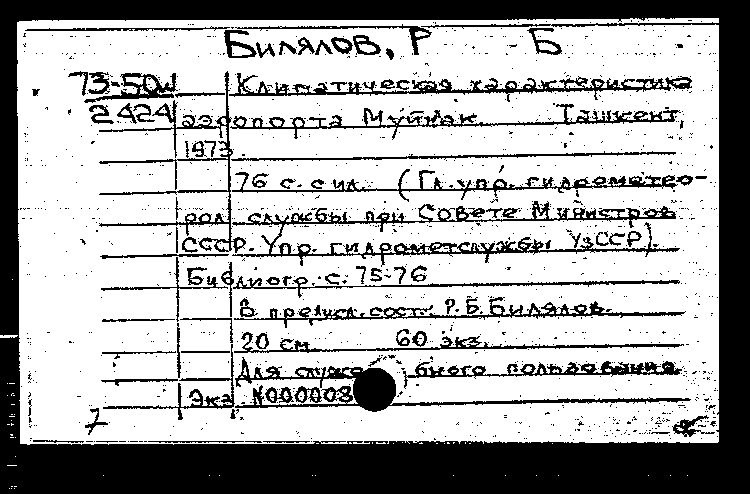 Билялов, Р Б
73-50м Климатическая характеристика
2424 аэропорта Муйнак. Ташкент,
1973.
76 с. с ил. (Гл. упр. гидрометео-
рол. службы при Совете Министров
СССР. Упр. гидрометслужбы УзССР).
Библиогр. с. 75-76
В предисл. сост.: Р.Б. Билялов.
20 см 60 экз.
Для служебного пользования
Экз N000008
7